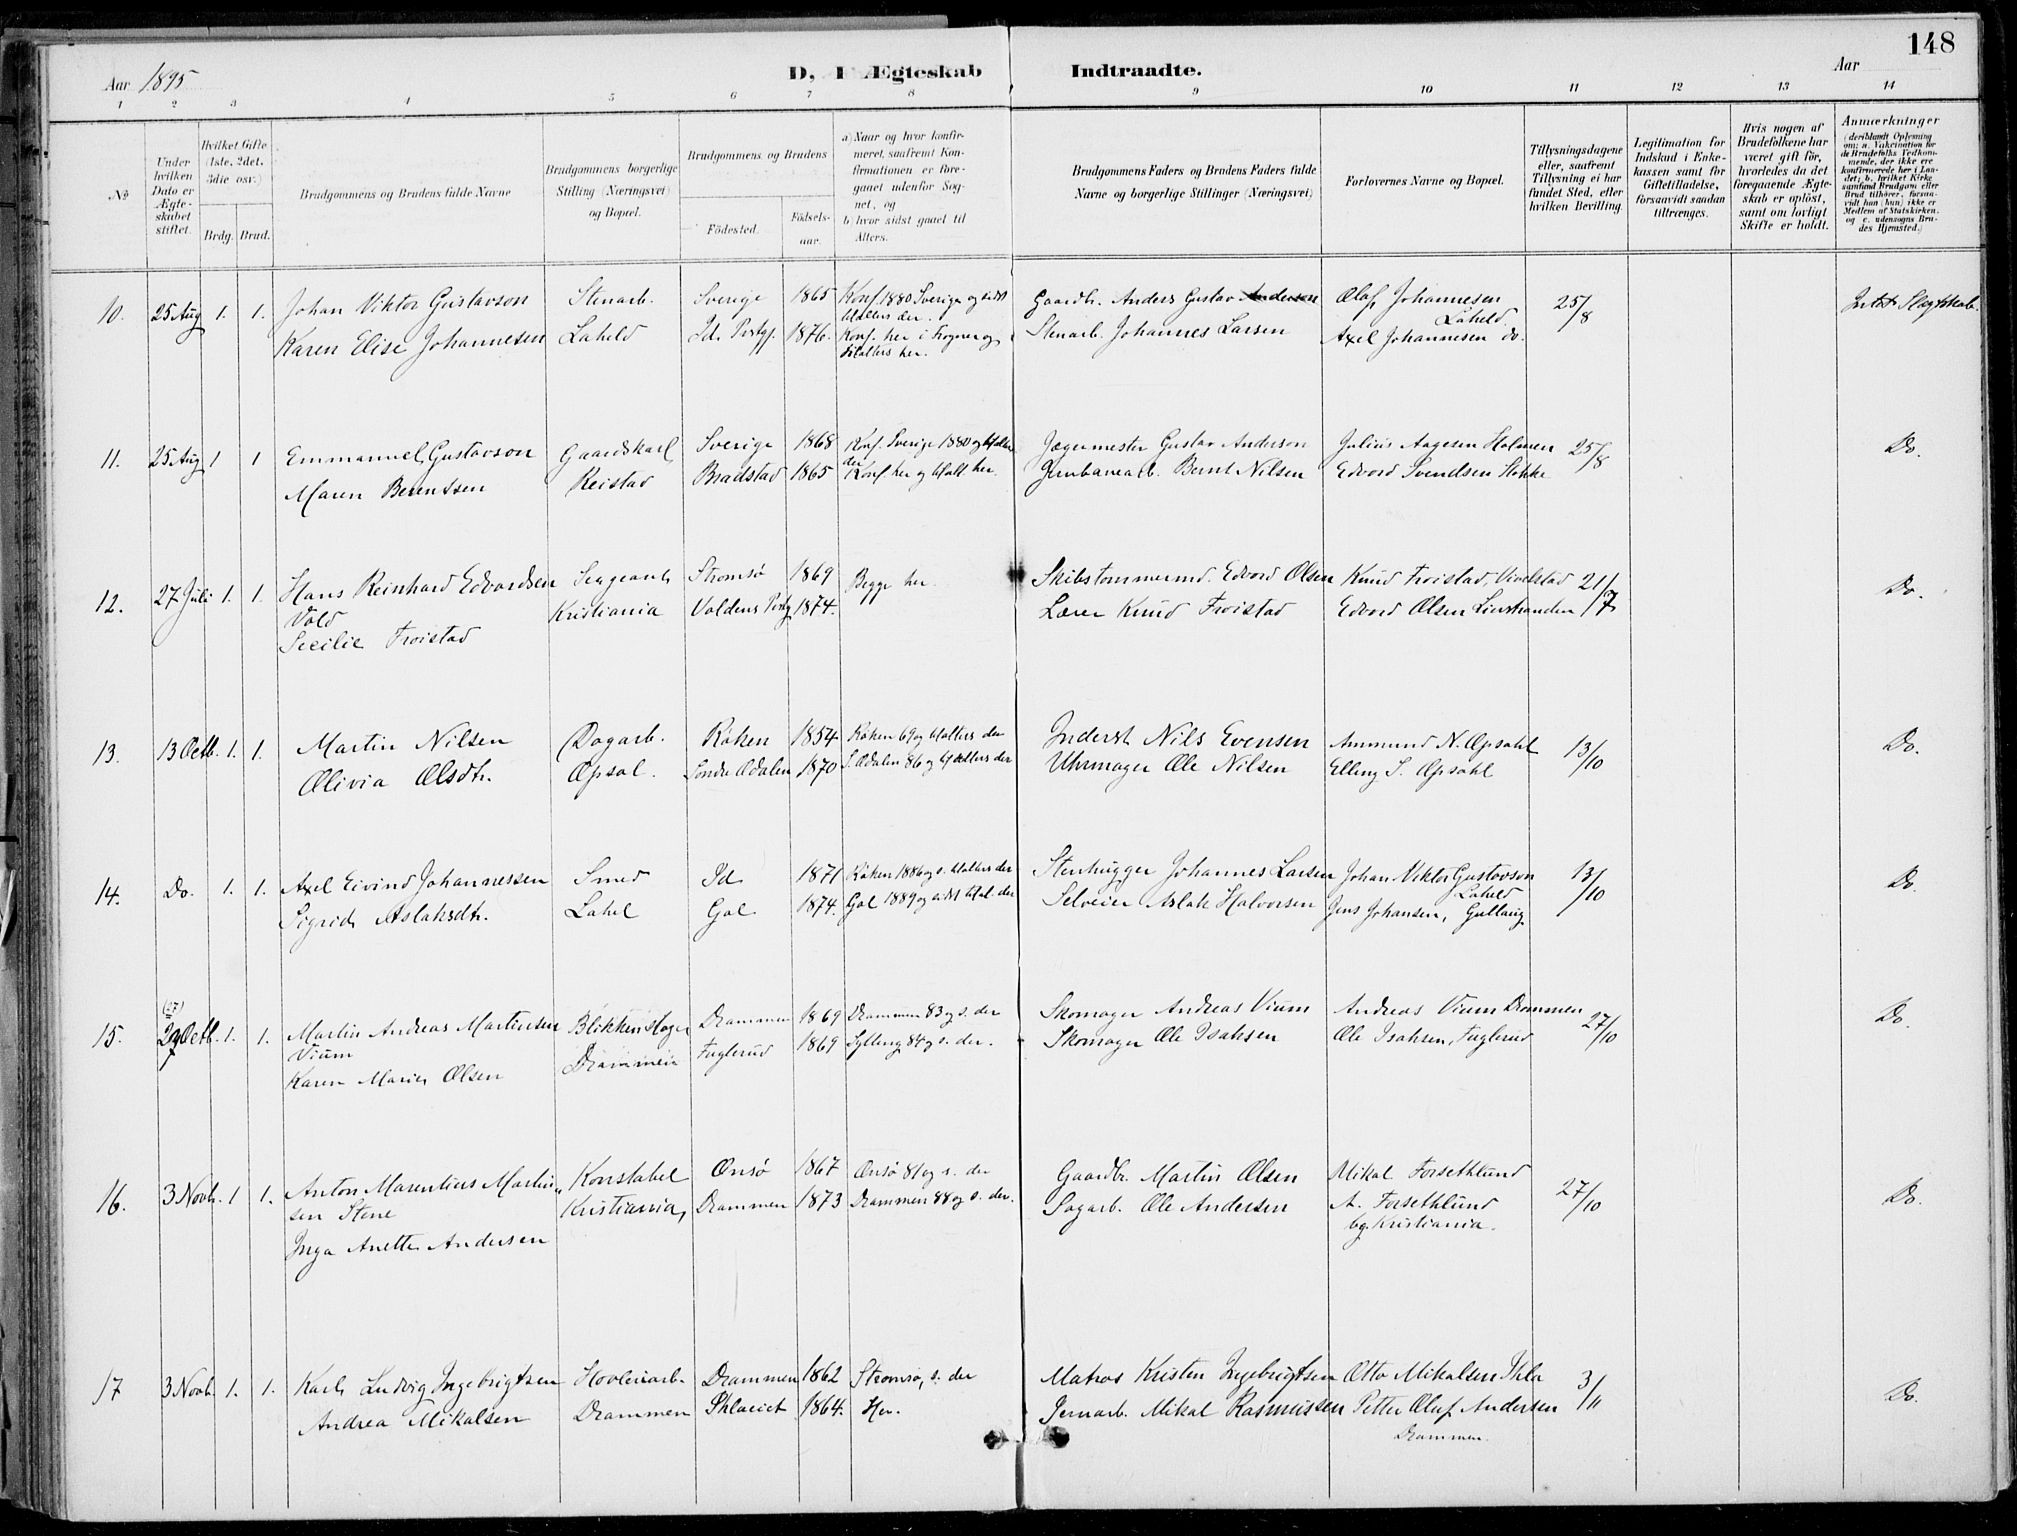 148
Aar 1895 D, I Ægteskab Indtraadte. Aar
1 2 3 4 5 6 7 8 9 10 11 12 13 14
No
Under hvilken Dato er Ægteskabet stiftet.
Hvilket Gifte (1ste, 2det, 3die osv.)
Brdg. Brud.
Brudgommens og Brudens fulde Navne
Brudgommens borgerlige Stilling (Næringsvei) og Bopæl.
Brudgommens og Brudens
Födested. Födselsaar.
a) Naar og hvor konfirmeret, saafremt Konfirmationen er foregaaet udenfor Sognet, og
b) hvor sidst gaaet til Alters.
Brudgommens Faders og Brudens Faders fulde Navne og borgerlige Stillinger (Næringsvei)
Forlovernes Navne og Bopæl.
Tillysningsdagene eller, saafremt Tillysning ei har fundet Sted, efter hvilken Bevilling.
Legitimation for Indskud i Enkekassen samt for Giftetilladelse, forsaavidt saadan tiltrænges.
Hvis nogen af Brudefolkene har været gift för, hvorledes da det foregaaende Ægteskab er oplöst, samt om lovligt Skifte er holdt.
Anmærkninger (deriblandt Oplysning om: a. Vakcination for de Brudefolks Vedkommende, der ikke ere konfirmerede her i Landet; b. hvilket Kirkesamfund Brudgom eller Brud tilhörer, forsaavidt han (hun) ikke er Medlem af Statskirken, og c. udensogns Brudes Hjemsted.)
10. 25 Aug 1. 1. Johan Viktor Gustavson Stenarb. Sverige 1865 Konf. 1880 Sverige og sidst tilalters der. Gaardb. Anders Gustav Anderson Olaf Johannesen Laheld 25/8 Intet Slægtskab.
Karen Elise Johannesen Laheld Id. Prstgj. 1876. Konf. her i Frogner og tilalters her. Stenarb. Johannes Larsen Axel Johannesen do.
11. 25 Aug 1 1 Emmanuel Gustavson Gaardskarl Sverige 1868 Konf. Sverige 1880 og tilalters der Jægermester Gustav Anderson Julius Aagesen Holmen 25/8 Do.
Maren Berentsen Reistad Bradstad 1865 Konf. her og tilalt her. Jernbanearb. Bernt Nilsen Edvord Svendsen Stokke
12. 27 Juli 1. 1. Hans Reinhard Edvardsen Sergeant Stromsø 1869 Begge her. Skibstømmermd. Edvard Olsen Knud Froistad, Vivelstad 21/7 Do.
Vold Kristiania Valdens Prstg 1874. Lærer Knud Froistad Edvard Olsen Linstranden
Secilie Froistad
13. 13 Octb. 1. 1. Martin Nilsen Dagarb. Røken 1854 Røken 69 og tilalters der Inderst Nils Evensen Ammund N. Opsahl 13/10 Do.
Olivia Olsdtr. Opsal. Søndre Odalen 1870 S. Odalen 86 og tilalters der Uhrmager Ole Nilsen Elling S. Opsahl
14. Do. 1. 1. Axel Eivind Johannessen Smed Id 1871 Røken 1886 og s. tilalters der Stenhugger Johannes Larsen Johan Viktor Gustavson Laheld 13/10 Do.
Sigrid Aslaksdtr. Lahel Gol 1874. Gol 1889 og sidst tilal. der Selveier Aslak Halvorsen Jens Johansen, Gullaug
15. (27) Octb. 1. 1. Martin Andreas Martinsen Blikkenslager Drammen 1869 Drammen 83 og s. der Skomager Andreas Vium Andreas Vium Drammen 27/10 Do.
Vium Drammen Fuglerud 1869 Sylling 84 og s. der. Skomager Ole Isaksen Ole Isaksen, Fuglerud
Karen Marie Olsen
16. 3 Novb. 1 1. Anton Marentius Martin- Konstabel Onsø 1867 Onsø 81 og s. der Gaardbr. Martin Olsen Mikal Forsethlund 27/10 Do.
sen Stene Kristiania, Drammen 1873 Drammen 88 og s. der. Sagarb. Ole Andersen A. Forsethlund
Inga Anette Andersen bg. Kristiania.
17 3 Novb. 1. 1. Karl Ludvig Ingebrigtsen Hovleriarb. Drammen 1862 Stromsø, s. der Matros Kristen Ingebrigtsen Otto Mikalsen 3/11 Do.
Andrea Mikalsen Drammen 1864. Her. Jernarb. Mikal Rasmussen Petter Olaf Andersen
Drammen.